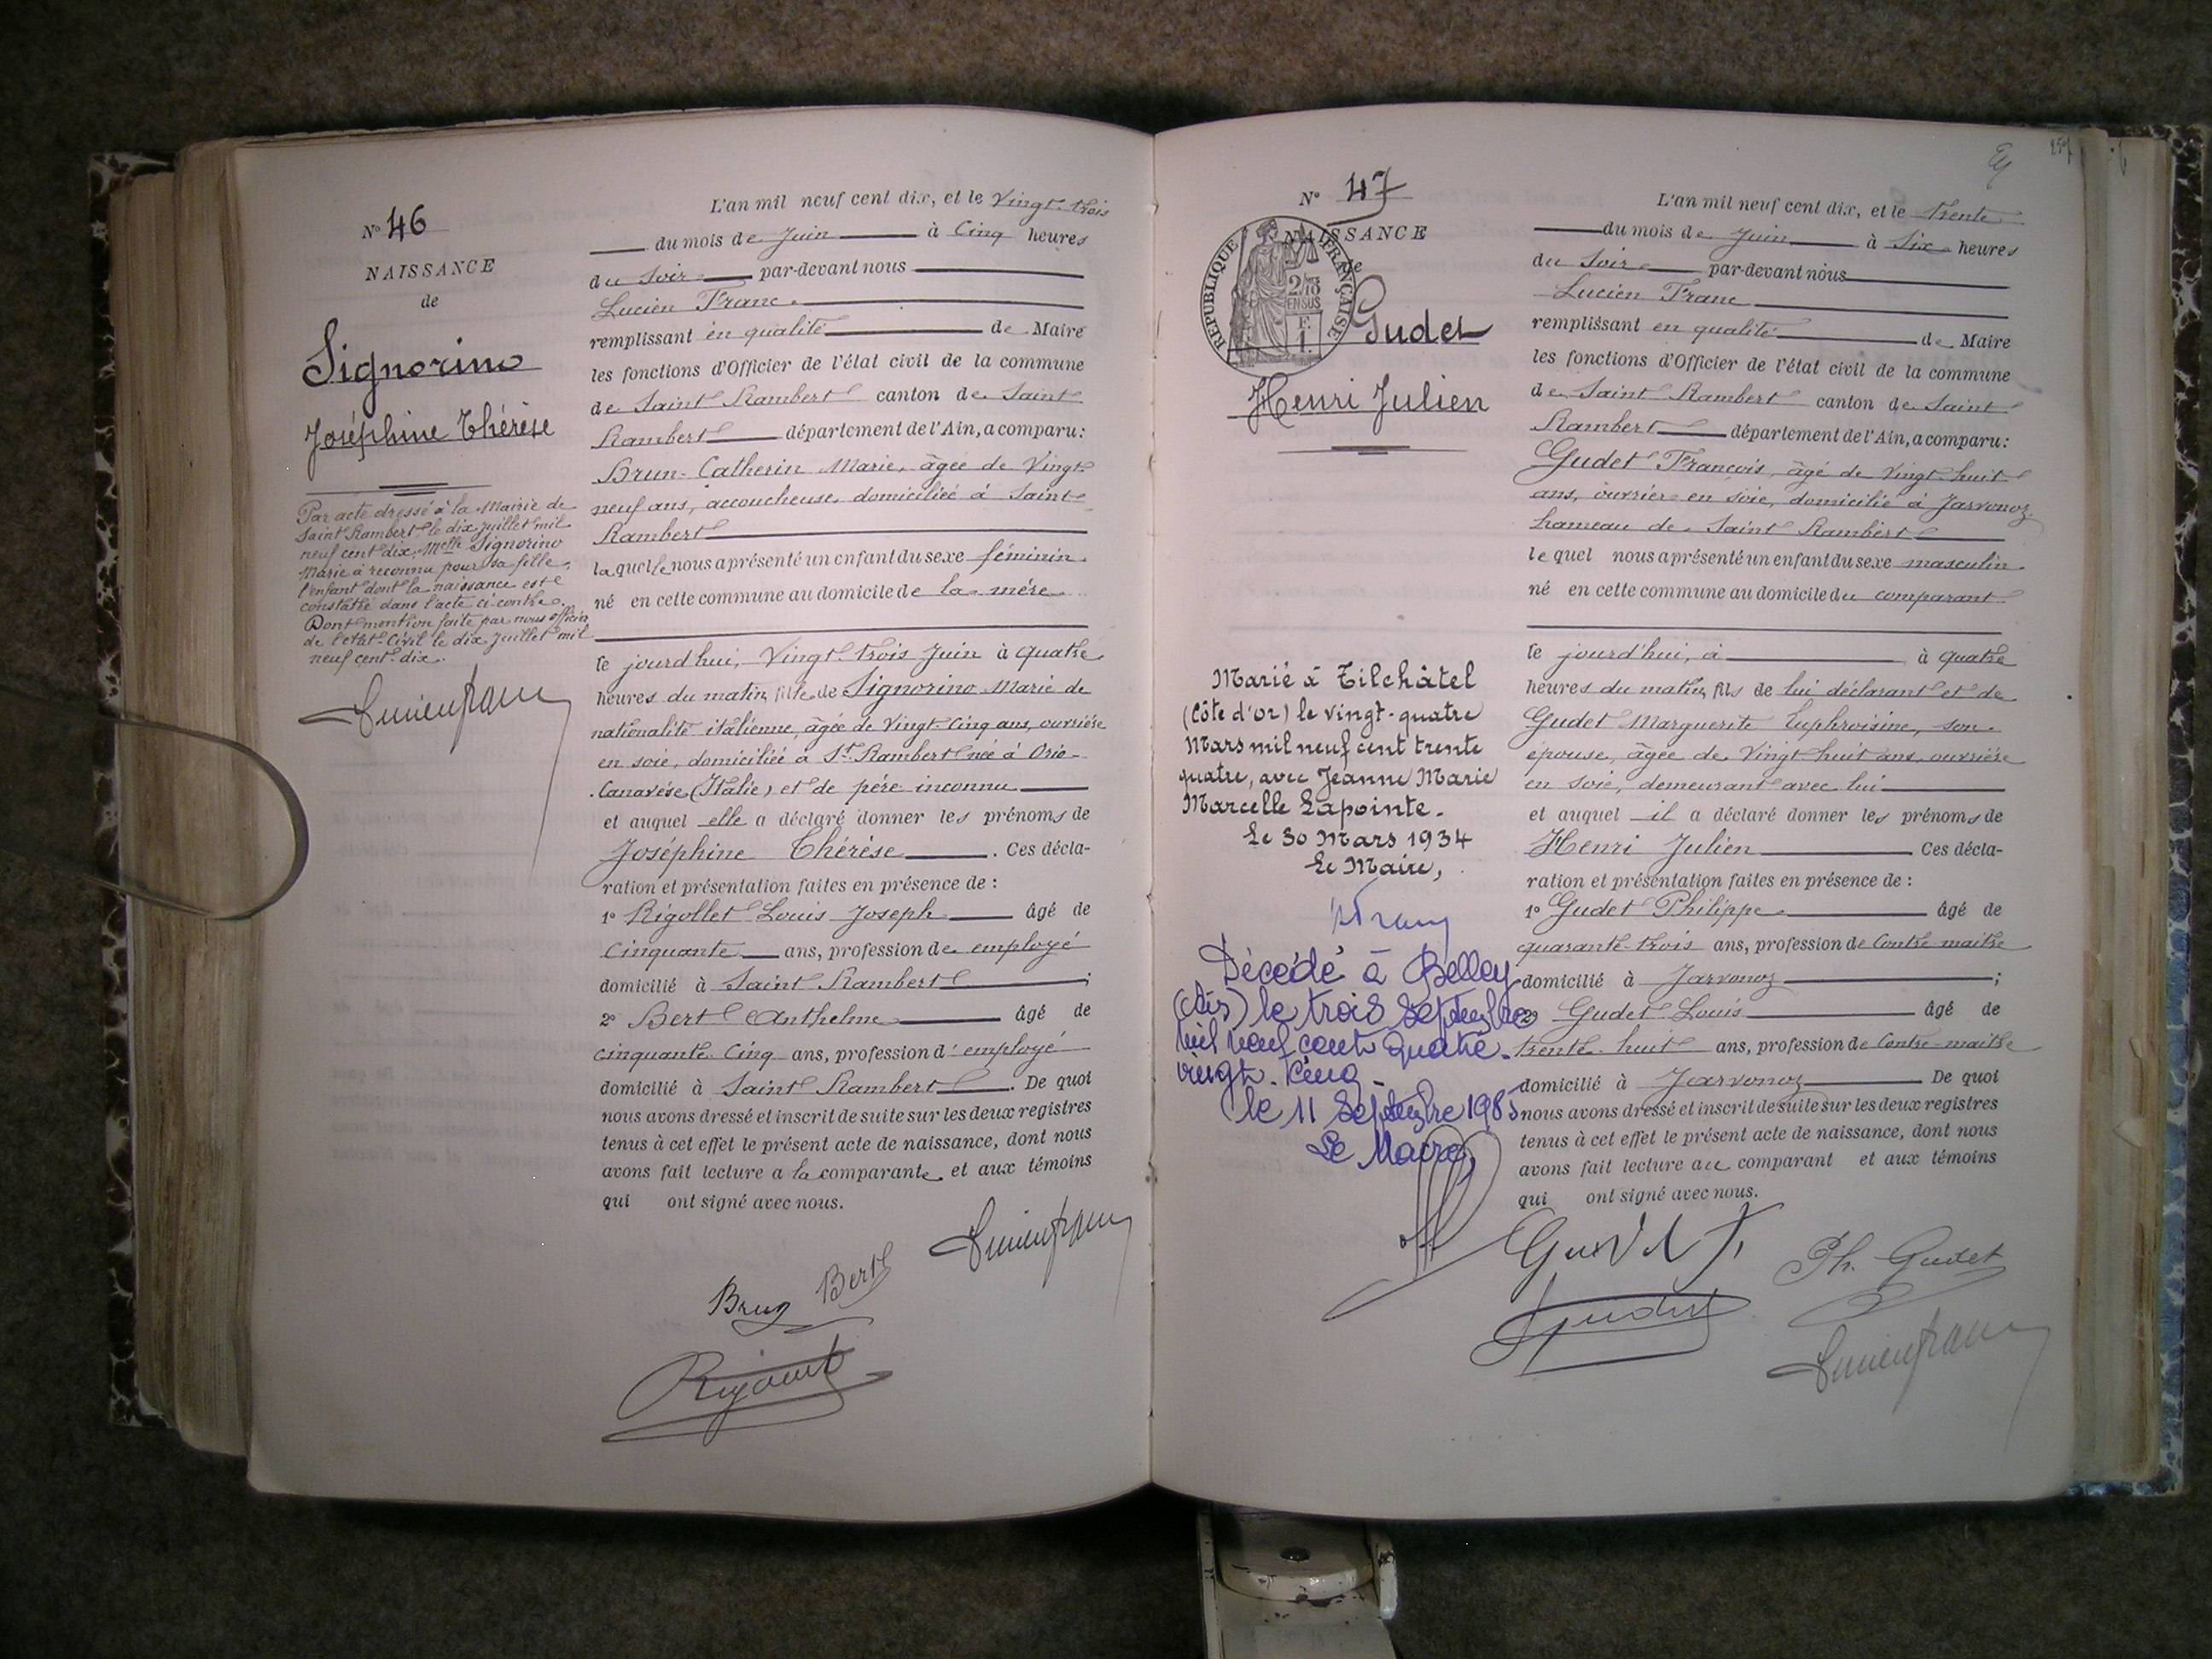 Nº 46
NAISSANCE
de
Signorino
Joséphine Thérèse
Par acte dressé à la Mairie de
Saint Rambert le dix juillet mil
neuf cent dix, Melle Signorino
Marie à reconnu pour sa fille,
l'enfant dont la naissance est
constatée dans l'acte ci-contre.
Dont mention faite par nous officier
de l'état-Civil le dix juillet mil
neuf cent dix.
Lucien Franc
L'an mil neuf cent dix, et le Vingt-trois
du mois de Juin à Cinq heures
du Soir par-devant nous
Lucien Franc
remplissant en qualité de Maire
les fonctions d'Officier de l'état civil de la commune
de Saint Rambert canton de Saint
Rambert département de l'Ain, a comparu:
Brun-Catherin Marie, âgée de Vingt-
neuf ans, accoucheuse, domiciliée à Saint-
Rambert
laquelle nous a présenté un enfant du sexe féminin
né en cette commune au domicile de la mère
ce jourd'hui, Vingt-trois Juin à quatre
heures du matin, fille de Signorino Marie de
nationalité italienne, âgée de Vingt-Cinq ans, ouvrière
en soie, domiciliée à St Rambert née à Orio-
Canavèse (Italie) et de père inconnu
et auquel elle a déclaré donner les prénoms de
Joséphine Thérèse. Ces décla-
ration et présentation faites en présence de :
1º Rigollet Louis Joseph âgé de
Cinquante ans, profession de employé
domicilié à Saint Rambert ;
2º Bert Anthelme âgé de
cinquante-cinq ans, profession d'employé
domicilié à Saint Rambert. De quoi
nous avons dressé et inscrit de suite sur les deux registres
tenus à cet effet le présent acte de naissance, dont nous
avons fait lecture a la comparante et aux témoins
qui ont signé avec nous.
Lucien Franc
Brun Bert
Nº 47
NAISSANCE
de
RÉPUBLIQUE FRANÇAISE
2/10
EN SUS
F.
1.
Gudet
Henri Julien
Marié à Tilchâtel
(Côte d'Or) le vingt-quatre
Mars mil neuf cent trente
quatre, avec Jeanne Marie
Marcelle Lapointe.
Le 30 Mars 1934
Le Maire,
Décédé à Belley
(Ain) le trois Septembre
mil neuf cent quatre-
vingt-cinq
le 11 Septembre 1985
Le Maire,
L'an mil neuf cent dix, et le trente
du mois de Juin à Six heures
du Soir par-devant nous
Lucien Franc
remplissant en qualité de Maire
les fonctions d'Officier de l'état civil de la commune
de Saint Rambert canton de Saint
Rambert département de l'Ain, a comparu:
Gudet François, âgé de Vingt-huit
ans, ouvrier en soie, domicilié à Jarvonoz
hameau de Saint Rambert
lequel nous a présenté un enfant du sexe masculin
né en cette commune au domicile du comparant
ce jourd'hui, à à quatre
heures du matin, fils de lui déclarant et de
Gudet Marguerite Euphroisine, son
épouse, âgée de Vingt-huit ans, ouvrière
en soie, demeurant avec lui
et auquel il a déclaré donner les prénoms de
Henri Julien Ces décla-
ration et présentation faites en présence de :
1º Gudet Philippe âgé de
quarante-trois ans, profession de Contre maitre
domicilié à Jarvonoz ;
2º Gudet Louis âgé de
trente-huit ans, profession de Contre-maitre
domicilié à Jarvonoz De quoi
nous avons dressé et inscrit de suite sur les deux registres
tenus à cet effet le présent acte de naissance, dont nous
avons fait lecture au comparant et aux témoins
qui ont signé avec nous.
Gudet F.
Ph. Gudet
Gudet
Lucien Franc